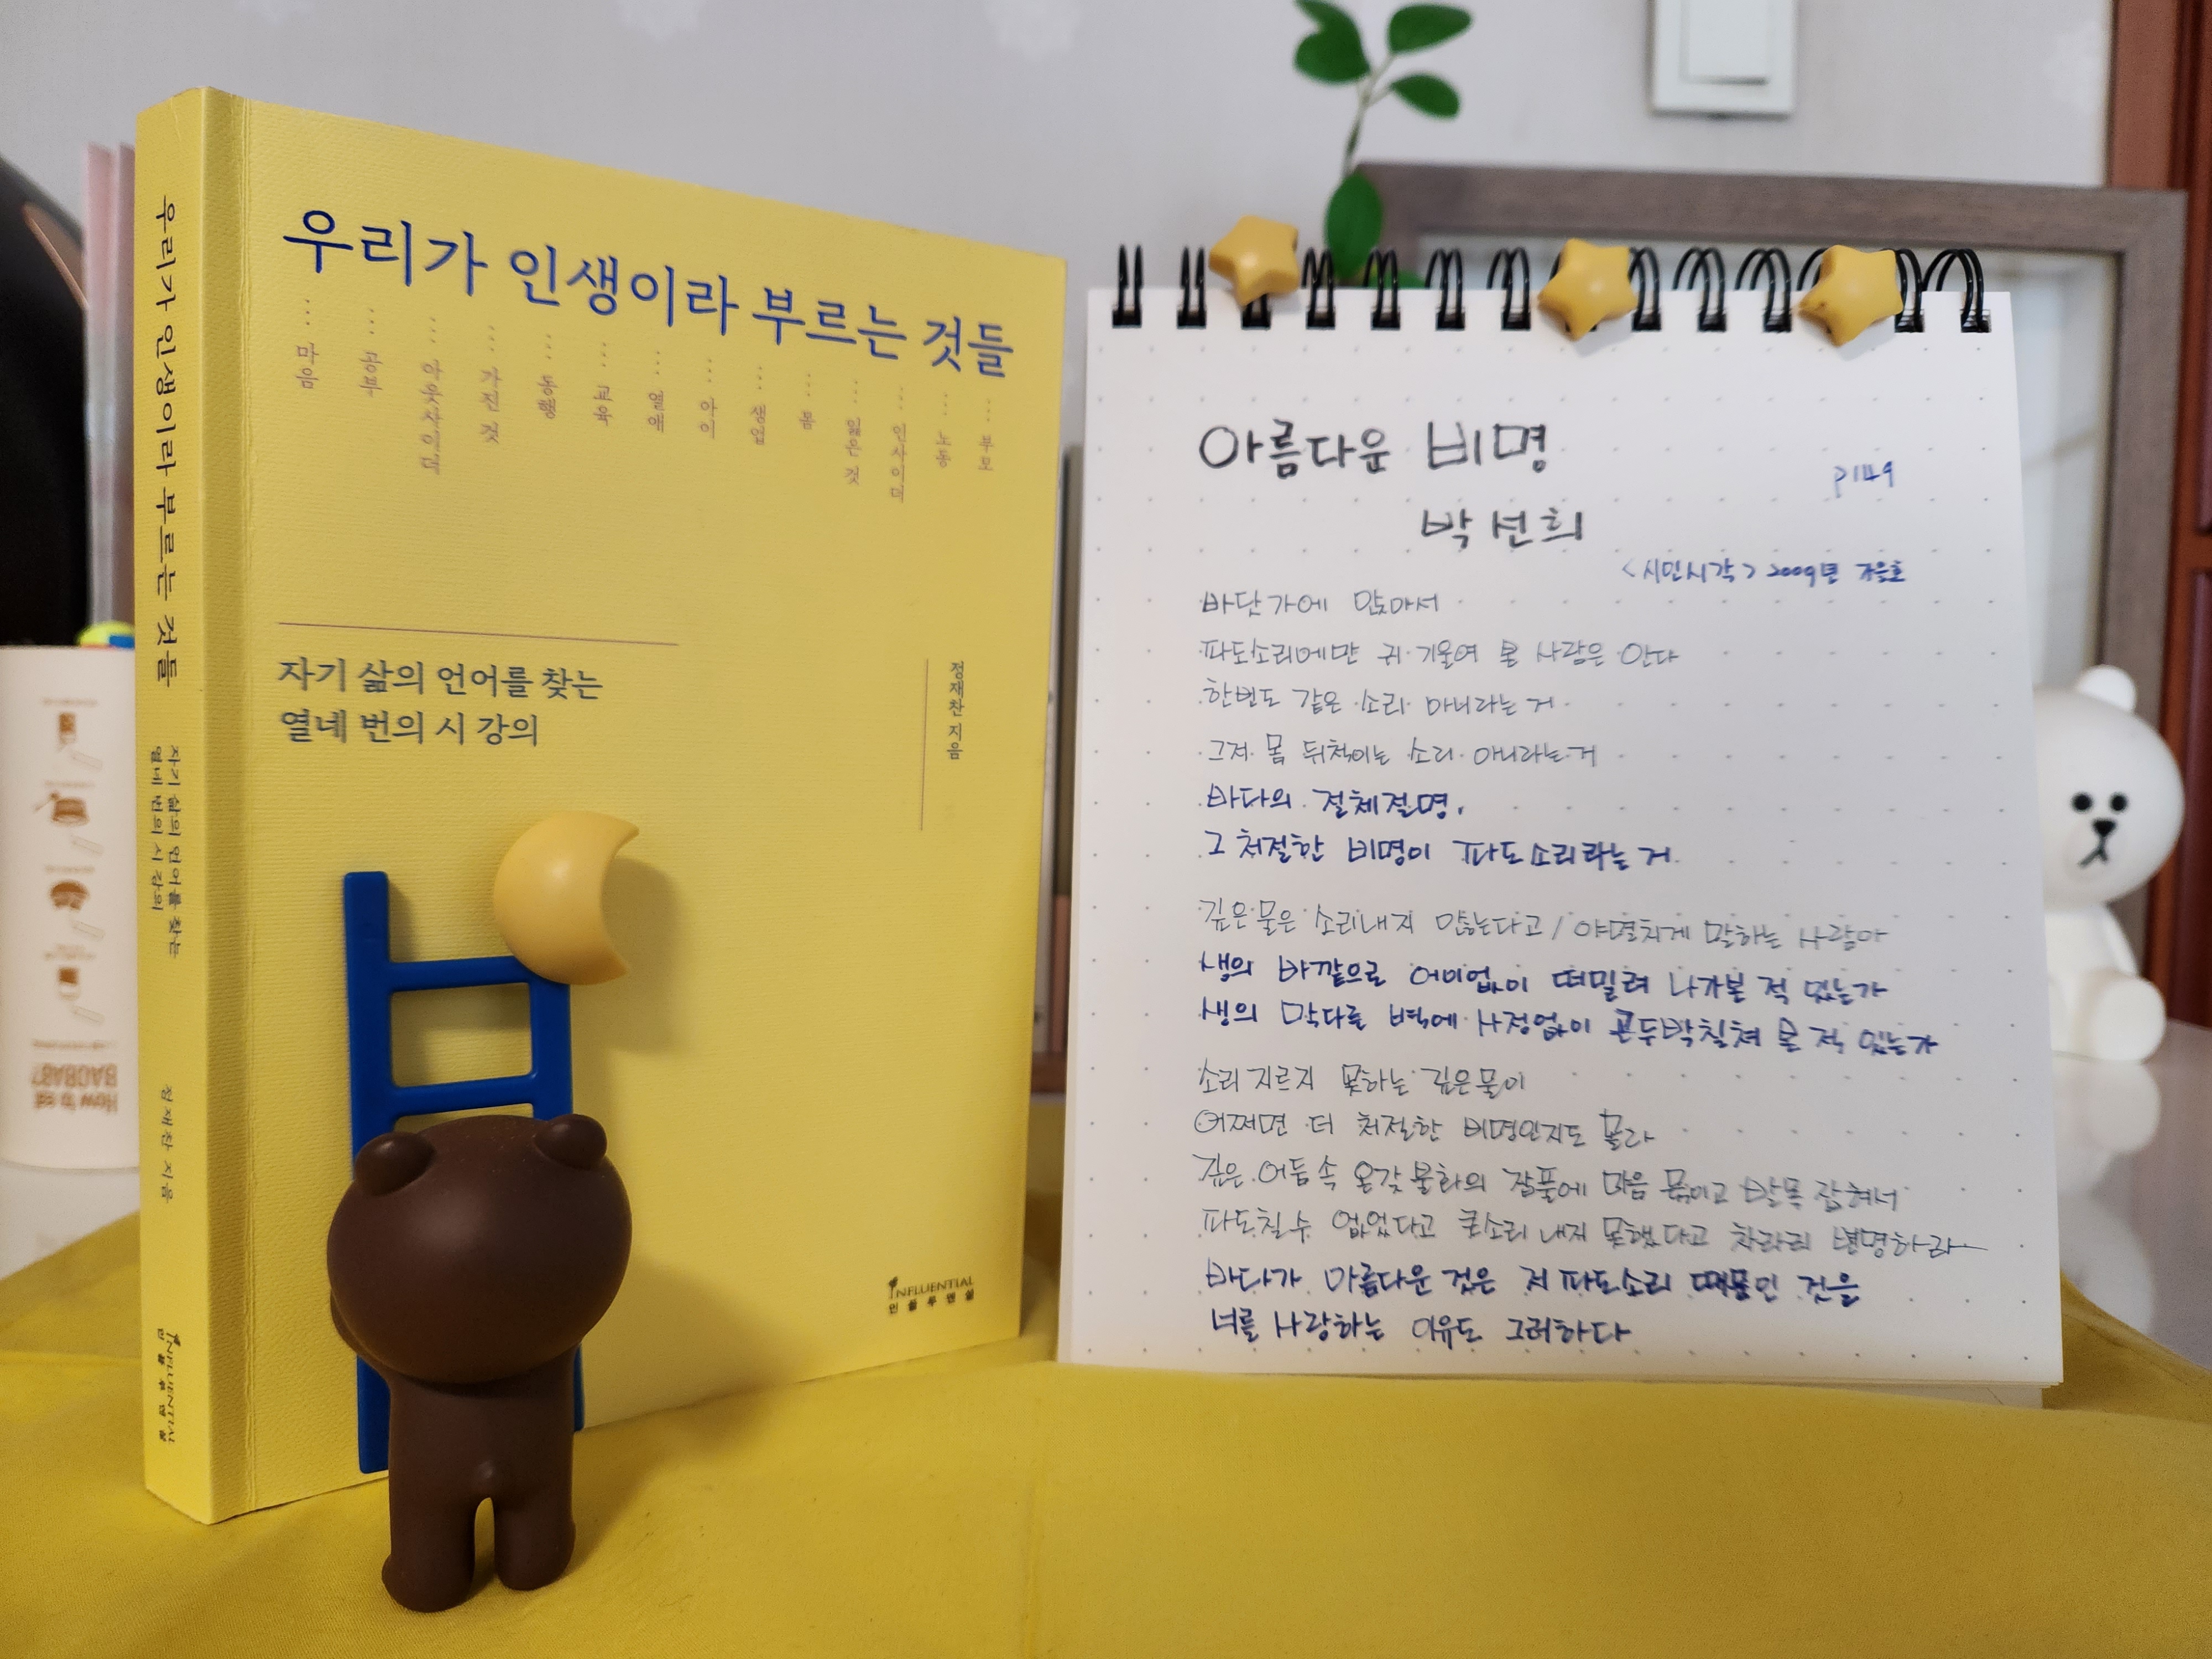 우리가 인생이라 부르는 것들
자기 삶의 언어를 찾는
열네 번의 시 강의
정재찬 지음
INFLUENTIAL
인플루엔셜
우리가 인생이라 부르는 것들
마음
공부
아웃사이더
가진 것
동행
교육
열애
아이
생업
몸
잃은 것
인사이더
노동
부모
자기 삶의 언어를 찾는
열네 번의 시 강의
정재찬 지음
INFLUENTIAL
인플루엔셜
How to eat
BAOBAB?
아름다운 비명
p149
박선희
<시민시각> 2009년 겨울호
바닷가에 앉아서
파도소리에만 귀 기울여 본 사람은 안다
한번도 같은 소리 아니라는 거
그저 몸 뒤척이는 소리 아니라는 거
바다의 절체절명,
그 처절한 비명이 파도소리라는 거
깊은 물은 소리내지 않는다고 / 야멸치게 말하는 사람아
생의 바깥으로 어이없이 떠밀려 나가본 적 있는가
생의 막다른 벽에 사정없이 곤두박칠쳐 본 적 있는가
소리 지르지 못하는 깊은 물이
어쩌면 더 처절한 비명인지도 몰라
깊은 어둠 속 온갖 불화의 잡풀에 마음 묶이고 발목 잡혀서
파도칠 수 없었다고 큰소리 내지 못했다고 차라리 변명하라
바다가 아름다운 것은 저 파도소리 때문인 것을
너를 사랑하는 이유도 그러하다